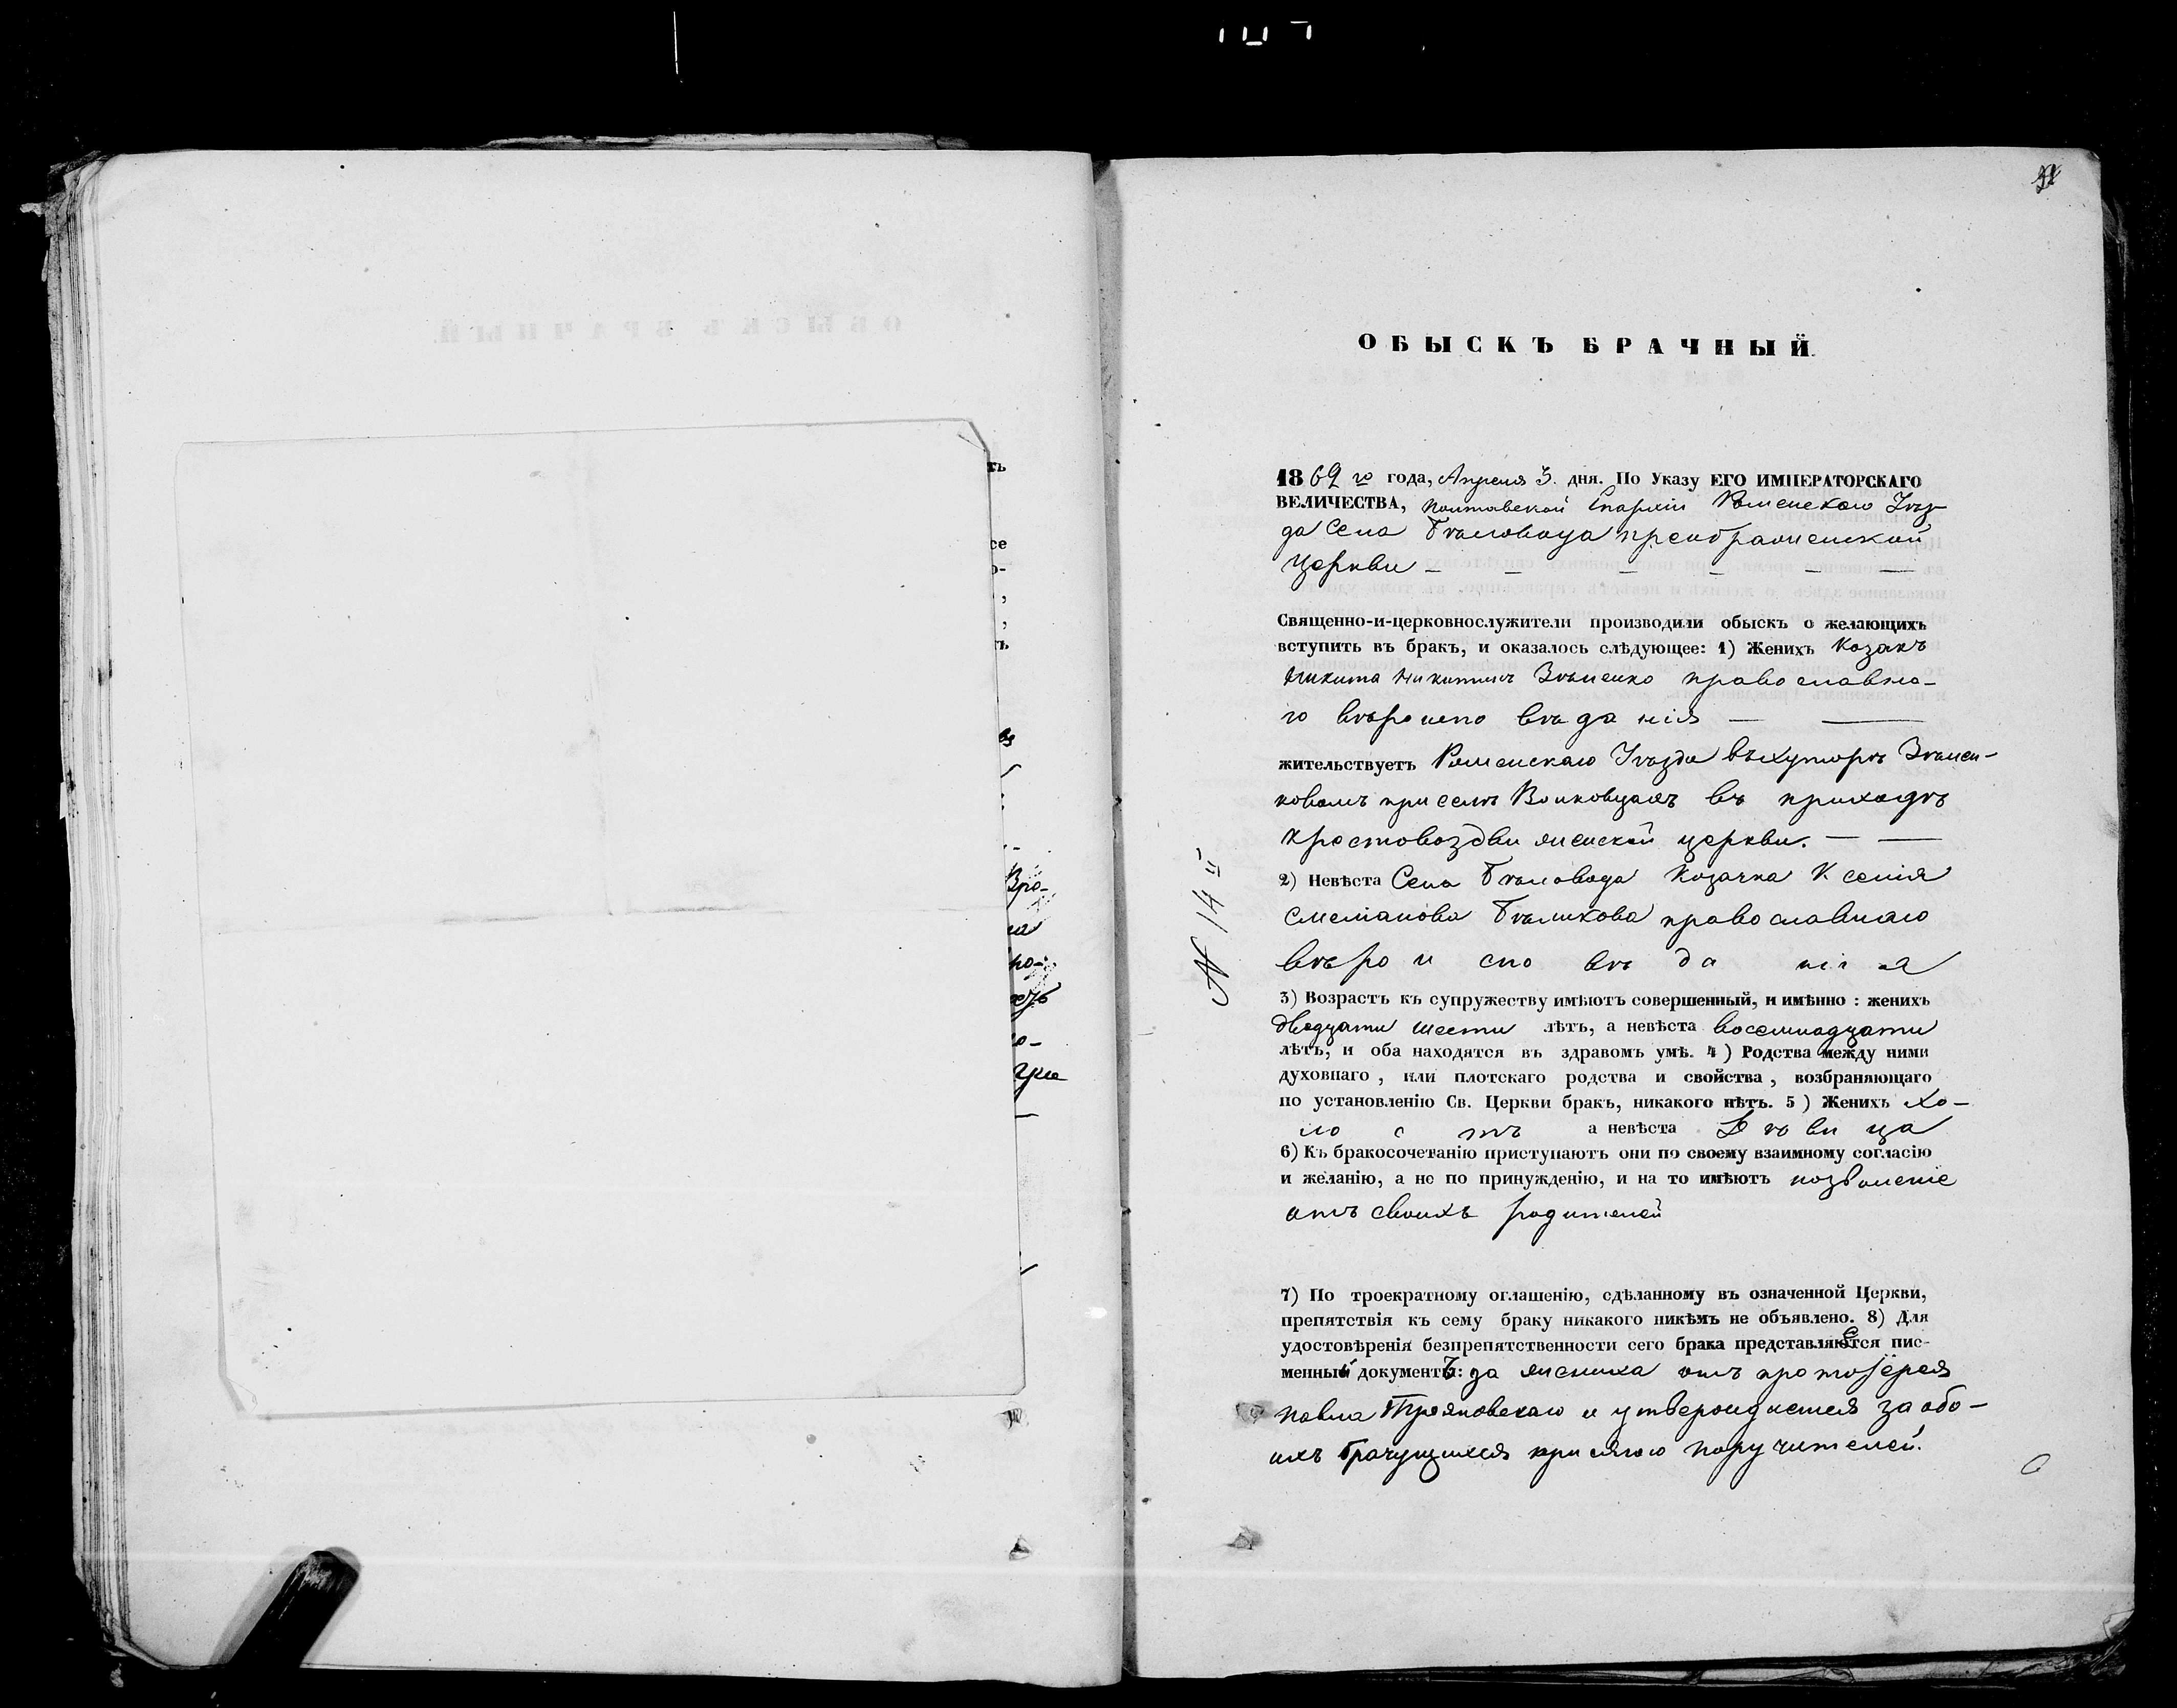 ОБЫСКЪ БРАЧНЫЙ.
1869 го года, Апреля 3. дня. По Указу ЕГО ИМПЕРАТОРСКАГО
ВЕЛИЧЕСТВА, Полтавской Епархіи Роменскаго Уѣз-
да Села Бѣловода преображенской
церкви — — — — — —
Священно-и-церковнослужители производили обыскъ о желающихъ
вступить въ бракъ, и оказалось слѣдующее: 1) Женихъ Козакъ
Никита Никитинъ православна-
го вѣроисповѣданія — —
жительствуетъ Роменскаго Уѣзда въ хуторѣ
при селѣ Волковцахъ въ приходѣ
крестовоздвиженской церкви. — —
№ 14й
2) Невѣста Села Бѣловода Козачка Ксенія
Стефанова Бѣликова православнаго
вѣроисповѣданія
3) Возрастъ къ супружеству имѣютъ совершенный, и имѣнно: женихъ
двадцати шести лѣтъ, а невѣста восемнадцати
лѣтъ, и оба находятся въ здравомъ умѣ. 4) Родства между ними
духовнаго, или плотскаго родства и свойства, возбраняющаго
по установленію Св. Церкви бракъ, никакого нѣтъ. 5) Женихъ хо-
лостъ а невѣста Дѣвица
6) Къ бракосочетанію приступаютъ они по своему взаимному согласію
и желанію, а не по принужденію, и на то имѣютъ позволеніе
отъ своихъ родителей
7) По троекратному оглашенію, сдѣланному въ означенной Церкви,
препятствія къ сему браку никакого никѣмъ не объявлено. 8) Для
удостовѣренія безпрепятственности сего брака представляется пис-
менный документъ: за жениха отъ протоіерея
Павла Трояновскаго и утверждается за обо-
ихъ брачущихся присягою поручителей.